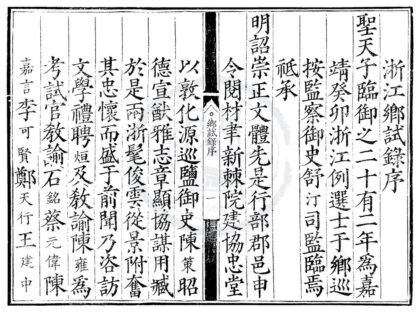 浙江鄉試錄序
聖天子臨御之二十有二年為嘉
靖癸卯浙江例選士于鄉巡
按監察御史舒汀司監臨焉
祗承
明詔崇正文體先是行部郡邑申
令閱材聿新棘院建協忠堂
總試錄序
一
以敦化源巡鹽御史陳策昭
德宣猷雅志章顯協謀用臧
於是兩浙髦俊雲從景附奮
其忠懷而盛于前聞乃咨訪
文學禮聘烜及教諭陳雍為
考試官教諭石銘蔡元偉陳
嘉言李可賢鄭天行王建中